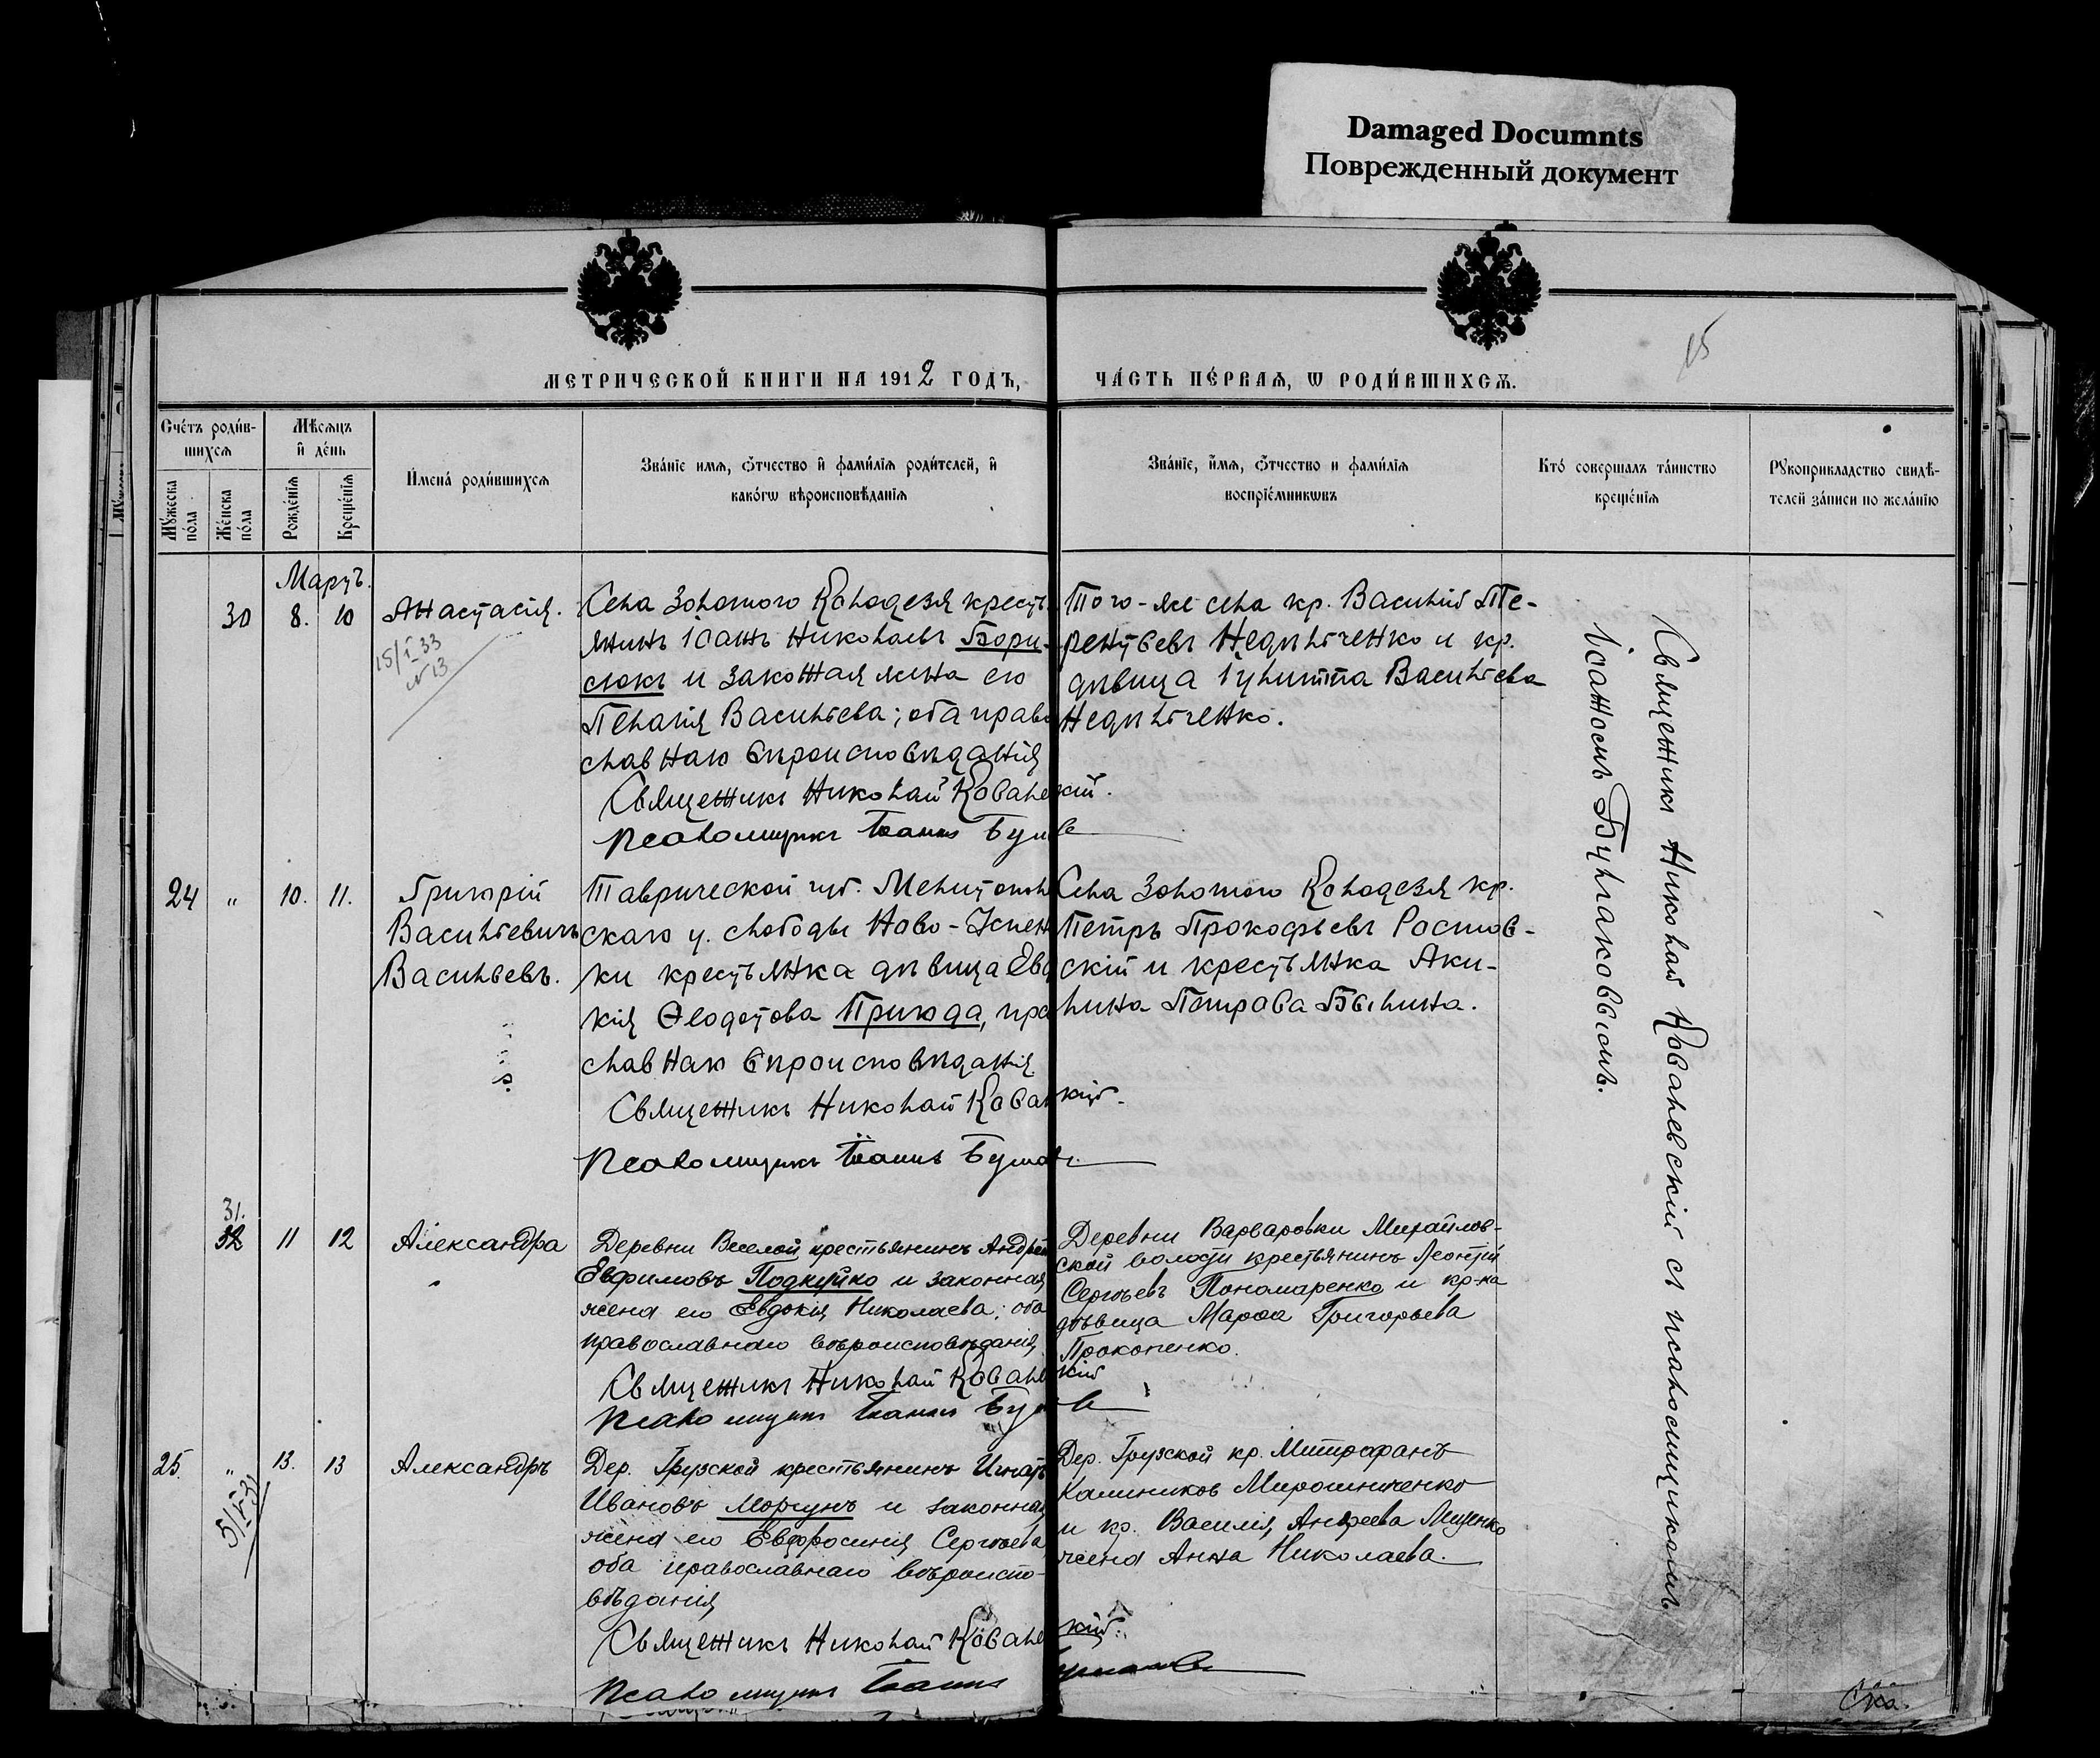 Damaged Documnts
Поврежденный документ
15
МЕТРИЧЕСКОЙ КНИГИ НА 1912 ГОДЪ,
ЧА́СТЬ ПЕ́РВАѦ, Ѡ РОДИ́ВШИХСѦ.
Сче́тъ роди́в-
шихсѧ
Мѣсѧцъ
и҆ де́нь
Мꙋ́жеска
по́ла
Же́нска
по́ла
Рожде́нїѧ
Креще́нїѧ
И҆мена́ роди́вшихсѧ
Зва́нїе имѧ, ѻ҆́тчество и҆ фами́лїѧ роди́телей, и҆
како́гѡ вѣроисповѣ́данїѧ
Зва́нїе, и҆́мѧ, ѻ҆́тчество и фами́лїѧ
воспрїе́мникѡвъ
Кто́ соверша́лъ та́инство
креще́нїѧ
Рꙋкоприкладство свидѣ-
телей за́писи по жела́нїю
Мартъ.
30 8. 10 Анастасія.
15/I 33
№ 13
Села Золотого Колодезя кресть
янинъ Іоаннъ Николаевъ Бори-
слюкъ и законная жена его
Пелагія Васильева; оба право
славнаго вѣроисповѣданія
Священникъ Николай Ковалевскій.
Псаломщикъ Іоаннъ
Того-же села кр. Василій Те-
рентьевъ Недѣльченко и кр.
дѣвица Іулитта Васильева
Недѣльченко.
Священникъ Николай Ковалевскій съ псаломщикомъ
Іоанномъ Булгаковымъ.
24 " 10. 11. Григорій
Васильевичъ
Васильевъ.
Таврической губ. Мелитополь
скаго у. слободы Ново-Успен
ки крестьянка дѣвица Евдо
кія Ѳеодотова Пригода, пра
славнаго вѣроисповѣданія
Священникъ Николай Ковал кій.
Псаломщикъ Іоаннъ
Села Золотого Колодезя кр.
Петръ Прокофьевъ Ростов-
скій и крестьянка Аки-
лина Петрова Былина.
31.
32 11 12 Александра
Деревни Веселой крестьянинъ Андрей
Евфимовъ Подкуйко и законная
жена его Евдокія Николаева; оба
православнаго вѣроисповѣданія,
Священникъ Николай Ковале кій
Псаломщикъ Іоаннъ
Деревни Варваровки Михайлов-
ской волости крестьянинъ Леонтій
Сергѣевъ Пономаренко и кр-ка
дѣвица Марѳа Григорьева
Прокопенко.
25. " 13. 13 Александръ
Дер. Грузской крестьянинъ Игнатъ
Ивановъ Моргунъ и законная
жена его Евфросинія Сергѣева
оба православнаго вѣроиспо-
вѣданія,
Священникъ Николай Ковале кій.
Псаломщикъ Іоаннъ
Дер. Грузской кр. Митрофанъ
Калиников Мирошниченко
и кр. Василія Андреева Мищенко
жена Анна Николаева.